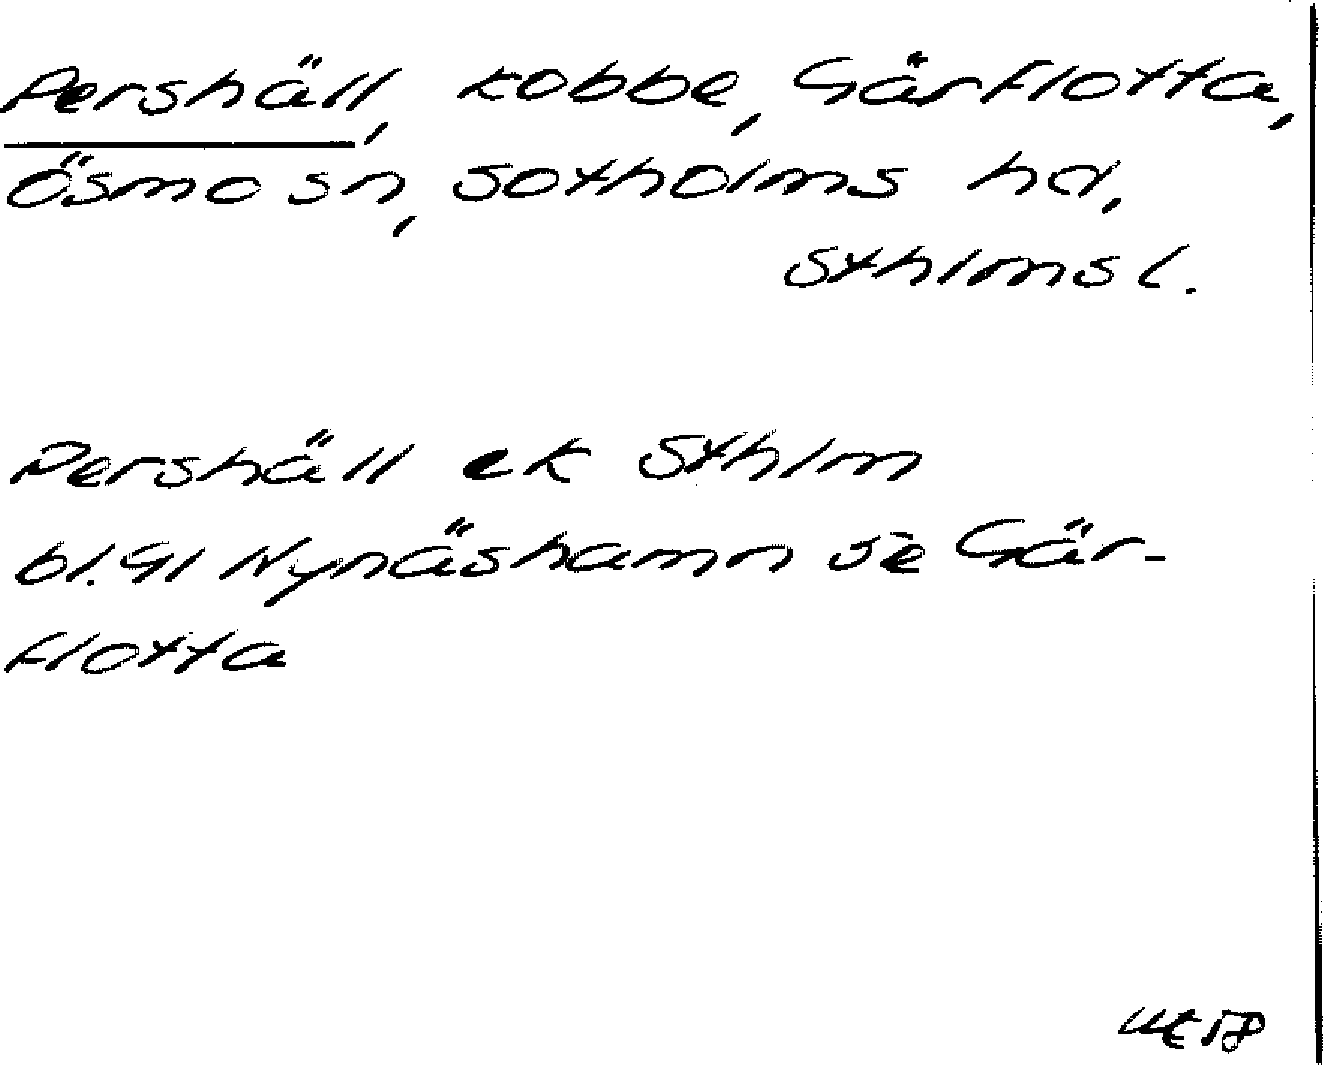 Pershäll, kobbe, Gårflotta,
Ösmo sn, Sotholms hd,
Sthlmsl.
Pershäll ek Sthlm
bl. 91 Nynäshamn se Går-
flotta